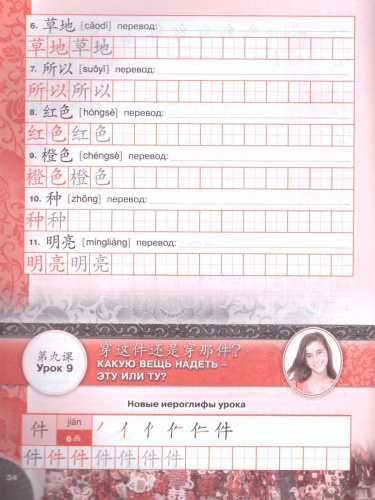 6. 草地 [cǎodì] перевод:
草地草地
7. 所以 [suǒyǐ] перевод:
所以所以
8. 红色 [hóngsè] перевод:
红色红色
9. 橙色 [chéngsè] перевод:
橙色橙色
10. 种 [zhǒng] перевод:
种种
11. 明亮 [míngliàng] перевод:
明亮明亮
第九课
Урок 9
穿这件还是穿那件?
КАКУЮ ВЕЩЬ НАДЕТЬ –
ЭТУ ИЛИ ТУ?
Новые иероглифы урока
件 jiàn
6画
件件件件件件件
34